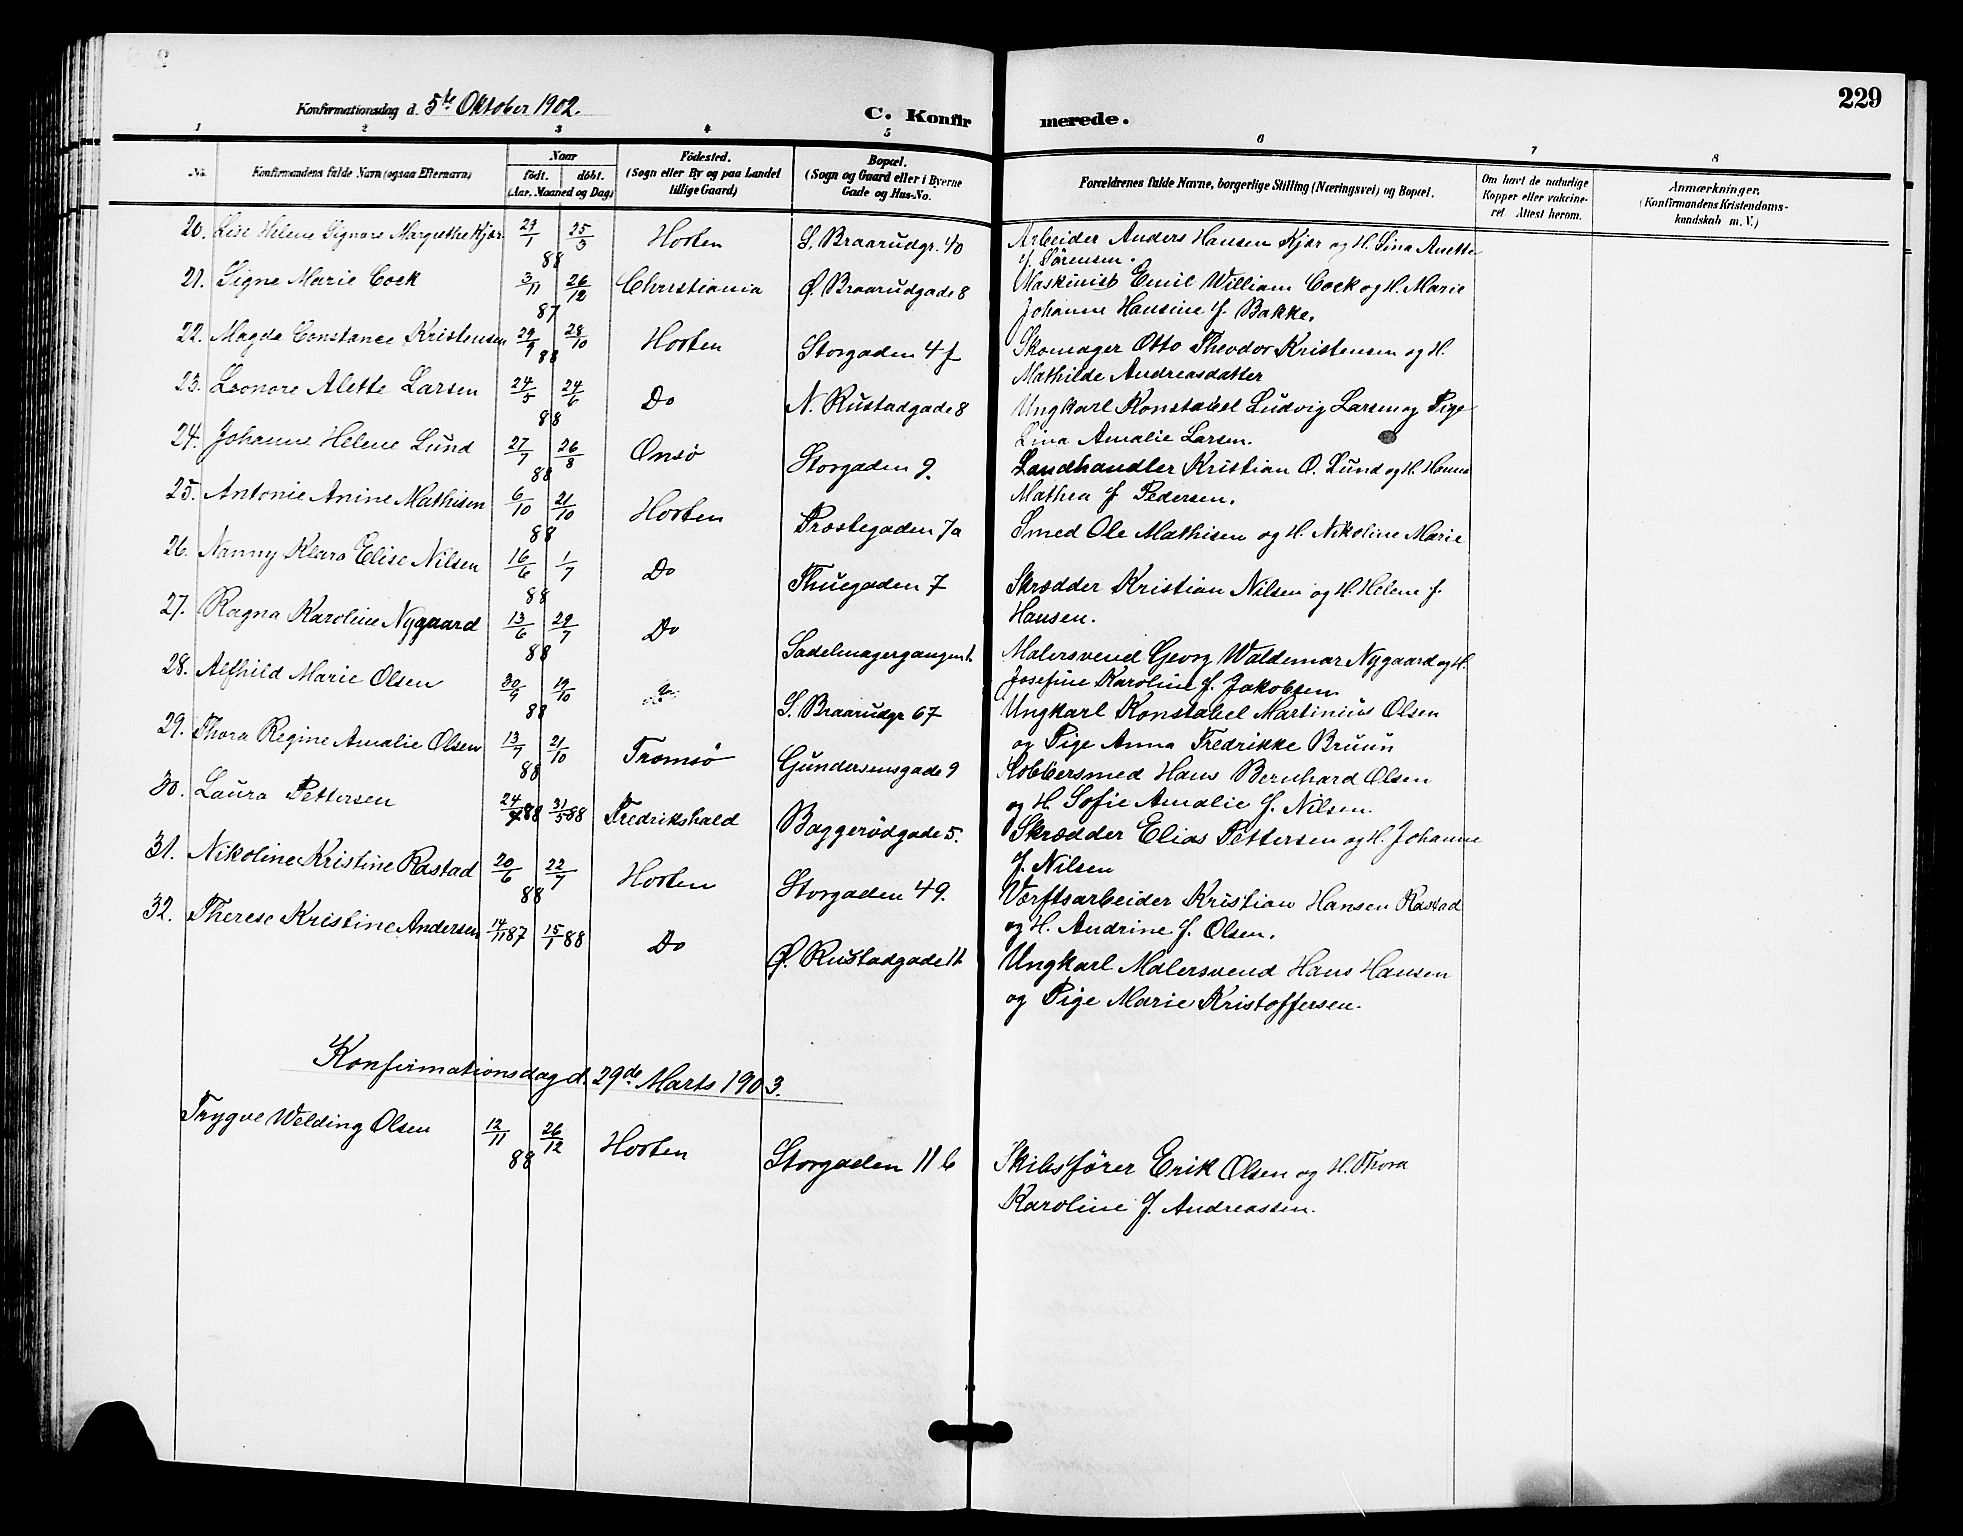 229
Konfirmationsdag d. 5te Oktober 1902.
C. Konfirmerede.
1 2 3 4 5 6 7 8
No.
Konfirmandens fulde Navn (ogsaa Efternavn)
Naar
født. døbt.
(Aar, Maaned og Dag)
Fødested.
(Sogn eller By og paa Landet
tillige Gaard)
Bopæl.
(Sogn og Gaard eller i Byerne
Gade og Hus-No.
Forældrenes fulde Navne, borgerlige Stilling (Næringsvei) og Bopæl.
Om havt de naturlige
Kopper eller vakcine-
ret Attest herom.
Anmærkninger.
(Konfirmandens Kristendoms-
kundskab m. V.)
20. Lise Helene Signore Margrethe Kjær 29/1 25/3 88 Horten S. Braarudgr. 40 Arbeider Anders Hansen Kjær og H. Lina Anette
f. Sørensen.
21. Signe Marie Cock 3/11 26/12 87 Christiania Ø. Braarudgade 8 Maskinist Emil William Cock og H. Marie
Johanne Hansine f. Bakke.
22. Magda Constance Kristensen 29/9 28/10 88 Horten Storgaden 4f Skomager Otto Theodor Kristensen og H.
Mathilde Andreasdatter
23. Leonore Alette Larsen 24/5 24/6 88 Do N. Rustadgade 8 Ungkarl Konstabel Ludvig Larsen og Pige
Lina Amalie Larsen.
24. Johanne Helene Lund 27/7 26/8 88 Onsø Storgaden 9. Landhandler Kristian O. Lund og H. Hanna
Mathea f. Pedersen.
25. Antonie Anine Mathisen 6/10 21/10 88 Horten Prostegaden 7a Smed Ole Mathisen og H. Nikoline Marie
26. Nanny Klara Elise Nilsen 16/6 1/7 88 Do Thuegaden 7 Skrædder Kristian Nilsen og H. Helene f.
Hansen.
27. Ragna Karoline Nygaard 13/6 29/7 88 Do Sadelmagergangen 1. Malersvend Georg Waldemar Nygaard og H.
Josefine Karoline f. Jakobsen.
28. Alfhild Marie Olsen 30/9 19/10 88 S. Braarudgr 67 Ungkarl Konstabel Martinius Olsen
og Pige Anna Fredrikke Bruun
29. Thora Regine Amalie Olsen 13/7 21/10 88 Tromsø Gundersensgade 9 Kobbersmed Hans Bernhard Olsen
og H. Sofie Amalie f. Nilsen.
30. Laura Pettersen 24/4 88 31/5 88 Fredrikshald Baggerødgade 5. Skrædder Elias Pettersen og H. Johanne
f. Nilsen
31. Nikoline Kristine Rastad 20/6 22/7 88 Horten Storgaden 49. Værftsarbeider Kristian Hansen Rastad
og H. Andrine f. Olsen.
32. Therese Kristine Andersen 14/11 87 15/1 88 Do Ø. Rustadgade 11 Ungkarl Malersvend Hans Hansen
og Pige Marie Kristoffersen.
Konfirmationsdag d. 29de Marts 1903.
Trygve Welding Olsen 12/11 26/12 88 Horten Storgaden 11b Skibsfører Erik Olsen og H. Thora
Karoline f. Andreassen.